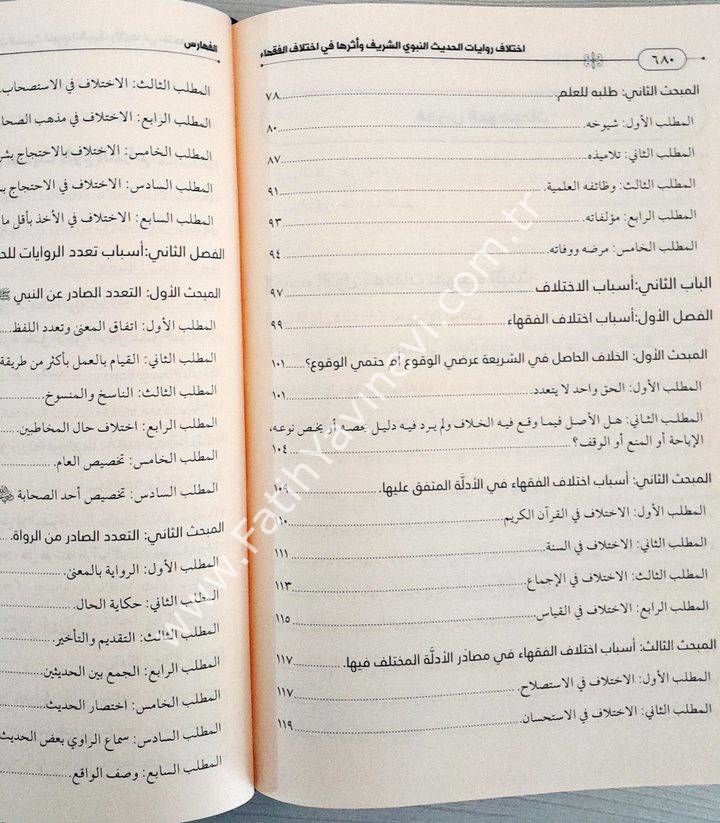 ٦٨٠
اختلاف روايات الحديث النبوي الشريف وأثرها في اختلاف الفقهاء
المبحث الثاني: طلبه للعلم ٧٨
المطلب الأول: شيوخه. ٨٠
المطلب الثاني: تلاميذه. ٨٧
المطلب الثالث: وظائفه العلمية. ٩١
المطلب الرابع: مؤلفاته. ٩٣
المطلب الخامس: مرضه ووفاته. ٩٤
الباب الثاني:أسباب الاختلاف ٩٧
الفصل الأول:أسباب اختلاف الفقهاء ٩٩
المبحث الأول: الخلاف الحاصل في الشريعة عرضي الوقوع أم حتمي الوقوع؟ ١٠١
المطلب الأول: الحق واحد لا يتعدد. ١٠١
المطلب الثاني: هل الأصل فيما وقع فيه الخلاف ولم يرد فيه دليل يخصه أو يخص نوعه،
الإباحة أو المنع أو الوقف؟ ١٠٤
المبحث الثاني: أسباب اختلاف الفقهاء في الأدلَّة المتفق عليها. ١٠٩
المطلب الأول: الاختلاف في القرآن الكريم ١١٠
المطلب الثاني: الاختلاف في السنة ١١١
المطلب الثالث: الاختلاف في الإجماع ١١٣
المطلب الرابع: الاختلاف في القياس ١١٥
المبحث الثالث: أسباب اختلاف الفقهاء في مصادر الأدلَّة المختلف فيها. ١١٧
المطلب الأول: الاختلاف في الاستصلاح. ١١٧
المطلب الثاني: الاختلاف في الاستحسان ١١٩
الفهارس
المطلب الثالث: الاختلاف في الاستصحاب.
المطلب الرابع: الاختلاف في مذهب
المطلب الخامس: الاختلاف بالاحتجاج
المطلب السادس: الاختلاف في الاحتجاج
المطلب السابع: الاختلاف في الأخذ بأقل ما
الفصل الثاني:أسباب تعدد الروايات
المبحث الأول: التعدد الصادر عن النبي ﷺ
المطلب الأول: اتفاق المعنى وتعدد اللفظ.
المطلب الثاني: القيام بالعمل بأكثر من طريقة
المطلب الثالث: الناسخ والمنسوخ.
المطلب الرابع: اختلاف حال المخاطبين.
المطلب الخامس: تخصيص العام.
المطلب السادس: تخصيص أحد الصحابة
المبحث الثاني: التعدد الصادر من الرواة.
المطلب الأول: الرواية بالمعنى.
المطلب الثاني: حكاية الحال.
المطلب الثالث: التقديم والتأخير.
المطلب الرابع: الجمع بين الحديثين.
المطلب الخامس: اختصار الحديث.
المطلب السادس: سماع الراوي بعض الحديث
المطلب السابع: وصف الواقع
www.FatihYayinevi.com.tr